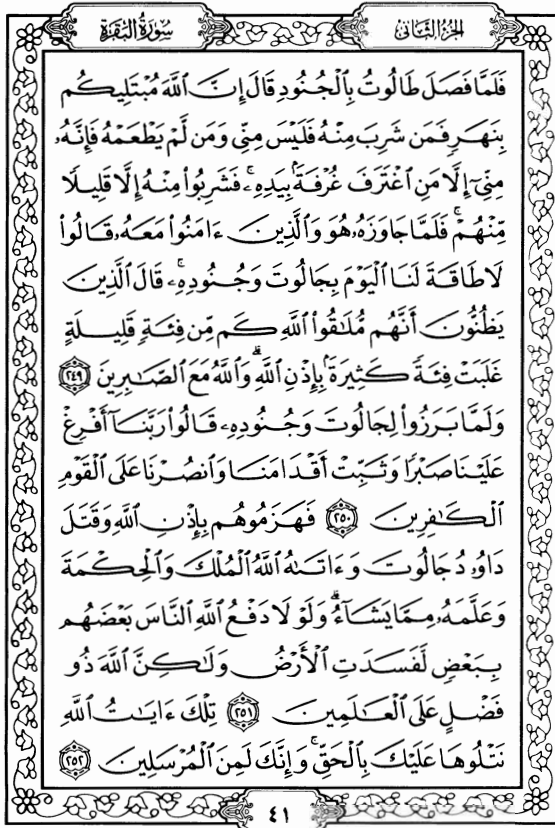 سُورَةُ البَقَرَةِ الجُزءُ الثَّانِى
فَلَمَّا فَصَلَ طَالُوتُ بِٱلْجُنُودِ قَالَ إِنَّ ٱللَّهَ مُبْتَلِيكُم
بِنَهَرٍ فَمَن شَرِبَ مِنْهُ فَلَيْسَ مِنِّى وَمَن لَّمْ يَطْعَمْهُ فَإِنَّهُۥ
مِنِّىٓ إِلَّا مَنِ ٱغْتَرَفَ غُرْفَةًۢ بِيَدِهِۦ ۚ فَشَرِبُوا۟ مِنْهُ إِلَّا قَلِيلًا
مِّنْهُمْ ۚ فَلَمَّا جَاوَزَهُۥ هُوَ وَٱلَّذِينَ ءَامَنُوا۟ مَعَهُۥ قَالُوا۟
لَا طَاقَةَ لَنَا ٱلْيَوْمَ بِجَالُوتَ وَجُنُودِهِۦ ۚ قَالَ ٱلَّذِينَ
يَظُنُّونَ أَنَّهُم مُّلَـٰقُوا۟ ٱللَّهِ كَم مِّن فِئَةٍ قَلِيلَةٍ
غَلَبَتْ فِئَةً كَثِيرَةًۢ بِإِذْنِ ٱللَّهِ ۗ وَٱللَّهُ مَعَ ٱلصَّـٰبِرِينَ ٢٤٩
وَلَمَّا بَرَزُوا۟ لِجَالُوتَ وَجُنُودِهِۦ قَالُوا۟ رَبَّنَآ أَفْرِغْ
عَلَيْنَا صَبْرًا وَثَبِّتْ أَقْدَامَنَا وَٱنصُرْنَا عَلَى ٱلْقَوْمِ
ٱلْكَـٰفِرِينَ ٢٥٠ فَهَزَمُوهُم بِإِذْنِ ٱللَّهِ وَقَتَلَ
دَاوُۥدُ جَالُوتَ وَءَاتَىٰهُ ٱللَّهُ ٱلْمُلْكَ وَٱلْحِكْمَةَ
وَعَلَّمَهُۥ مِمَّا يَشَآءُ ۗ وَلَوْلَا دَفْعُ ٱللَّهِ ٱلنَّاسَ بَعْضَهُم
بِبَعْضٍ لَّفَسَدَتِ ٱلْأَرْضُ وَلَـٰكِنَّ ٱللَّهَ ذُو
فَضْلٍ عَلَى ٱلْعَـٰلَمِينَ ٢٥١ تِلْكَ ءَايَـٰتُ ٱللَّهِ
نَتْلُوهَا عَلَيْكَ بِٱلْحَقِّ ۚ وَإِنَّكَ لَمِنَ ٱلْمُرْسَلِينَ ٢٥٢
٤١